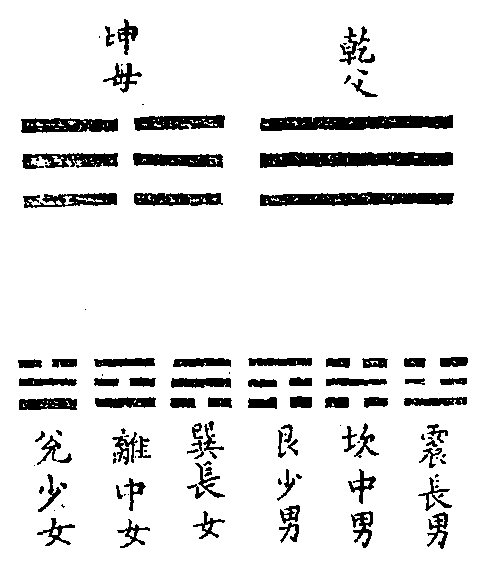 乾父
坤母
震長男
坎中男
艮少男
巽長女
離中女
兊少女